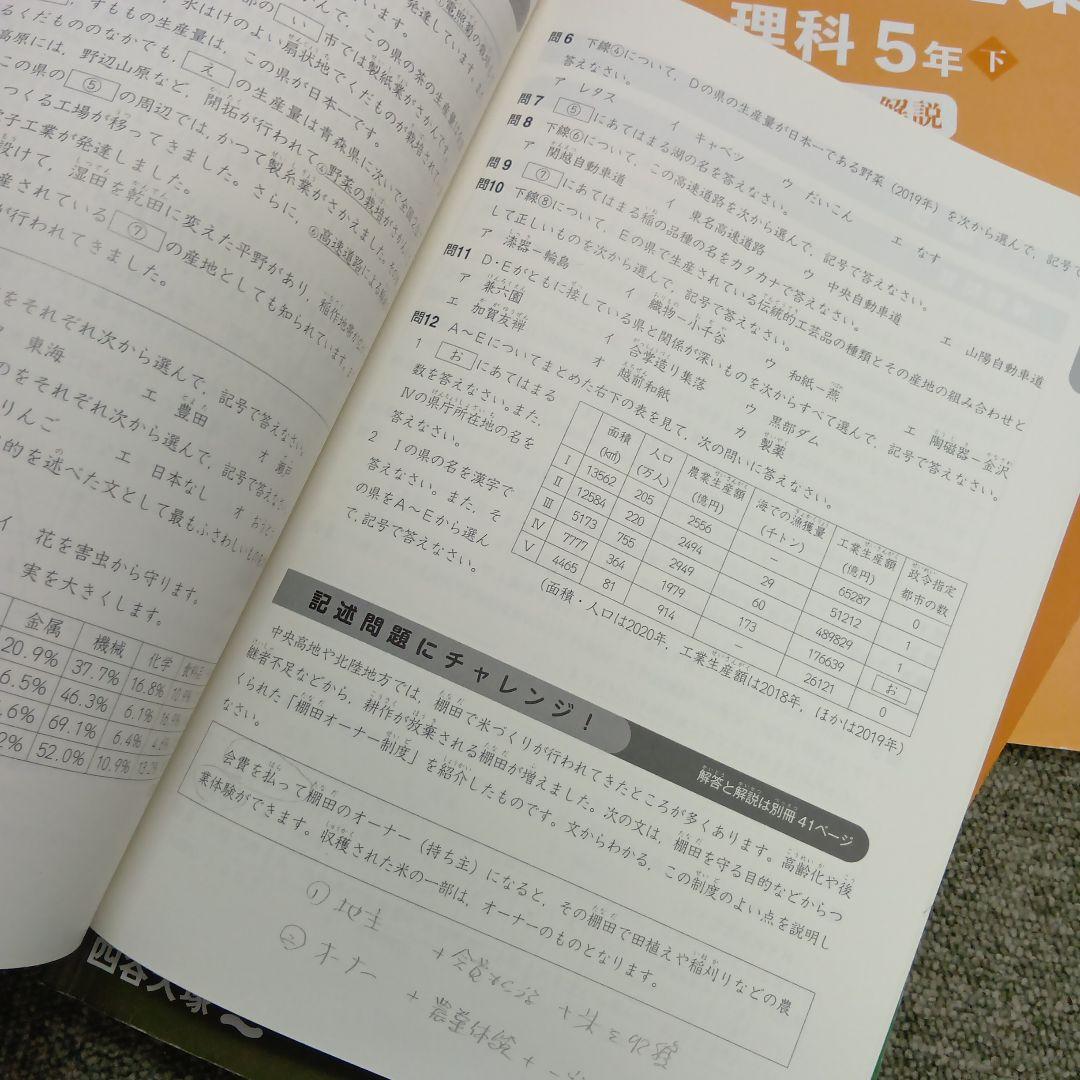 理科5年 下
解説
い 市では製紙業がさかんです。
水はけのよい扇状地でくだものが栽培され
すももの生産量は、この県が日本一です。
くだもののなかでも、 え の生産量は青森県に次いで全国
高原には、野辺山原など、開拓が行われて④野菜の栽培がさかん
この県の ⑤ の周辺では、かつて製糸業がさかえました。
つくる工場が移ってきました。さらに、⑥高速道路による
子工業が発達しました。
設けて、湿田を乾田に変えた平野があり、稲作地帯が
産されている ⑦ の産地としても知られています。
が行われてきました。
をそれぞれ次から選んで、記号で答えなさい。
東海
エ 豊田
オ 瀬戸
のをそれぞれ次から選んで、記号で答えなさい
りんご
エ 日本なし
的を述べた文として最もふさわしいものを
イ 花を害虫から守ります。
実を大きくします。
金属 機械 化学 食料品
20.9% 37.7% 16.8%
6.5% 46.3% 6.1%
69.1% 6.4%
2% 52.0% 10.9%
問6 下線④について、Dの県の生産量が日本一である野菜（2019年）を次から選んで、記号で
答えなさい。
ア レタス イ キャベツ ウ だいこん エ なす
問7 ⑤ にあてはまる湖の名を答えなさい。
問8 下線⑥について、この高速道路を次から選んで、記号で答えなさい。
ア 関越自動車道 イ 東名高速道路 ウ 中央自動車道 エ 山陽自動車道
問9 ⑦ にあてはまる稲の品種の名をカタカナで答えなさい。
問10 下線⑧について、Eの県で生産されている伝統的工芸品の種類とその産地の組み合わせと
して正しいものを次から選んで、記号で答えなさい。
ア 漆器－輪島 イ 織物－小千谷 ウ 和紙－燕 エ 陶磁器－金沢
問11 D・Eがともに接している県と関係が深いものを次からすべて選んで、記号で答えなさい。
ア 兼六園 イ 合掌造り集落 ウ 黒部ダム
エ 加賀友禅 オ 越前和紙 カ 製薬
問12 A～Eについてまとめた右下の表を見て、次の問いに答えなさい。
1 お にあてはまる
数を答えなさい。また、
Ⅳの県庁所在地の名を
答えなさい。
2 Ⅰの県の名を漢字で
答えなさい。また、そ
の県をA～Eから選ん
で、記号で答えなさい。
面積(km²) 人口(万人) 農業生産額(億円) 海での漁獲量(千トン) 工業生産額(億円) 政令指定都市の数
Ⅰ 13562 205 2556 － 65287 0
Ⅱ 12584 220 2494 29 51212 1
Ⅲ 5173 755 2949 60 489829 1
Ⅳ 7777 364 1979 173 176639 お
Ⅴ 4465 81 914 － 26121 0
（面積・人口は2020年、工業生産額は2018年、ほかは2019年）
記述問題にチャレンジ！
解答と解説は別冊41ページ
中央高地や北陸地方では、棚田で米づくりが行われてきたところが多くあります。高齢化や後
継者不足などから、耕作が放棄される棚田が増えました。次の文は、棚田を守る目的などからつ
くられた「棚田オーナー制度」を紹介したものです。文からわかる、この制度のよい点を説明し
なさい。
会費を払って棚田のオーナー（持ち主）になると、その棚田で田植えや稲刈りなどの農
業体験ができます。収穫された米の一部は、オーナーのものとなります。
① 地主
② オーナー
四谷大塚